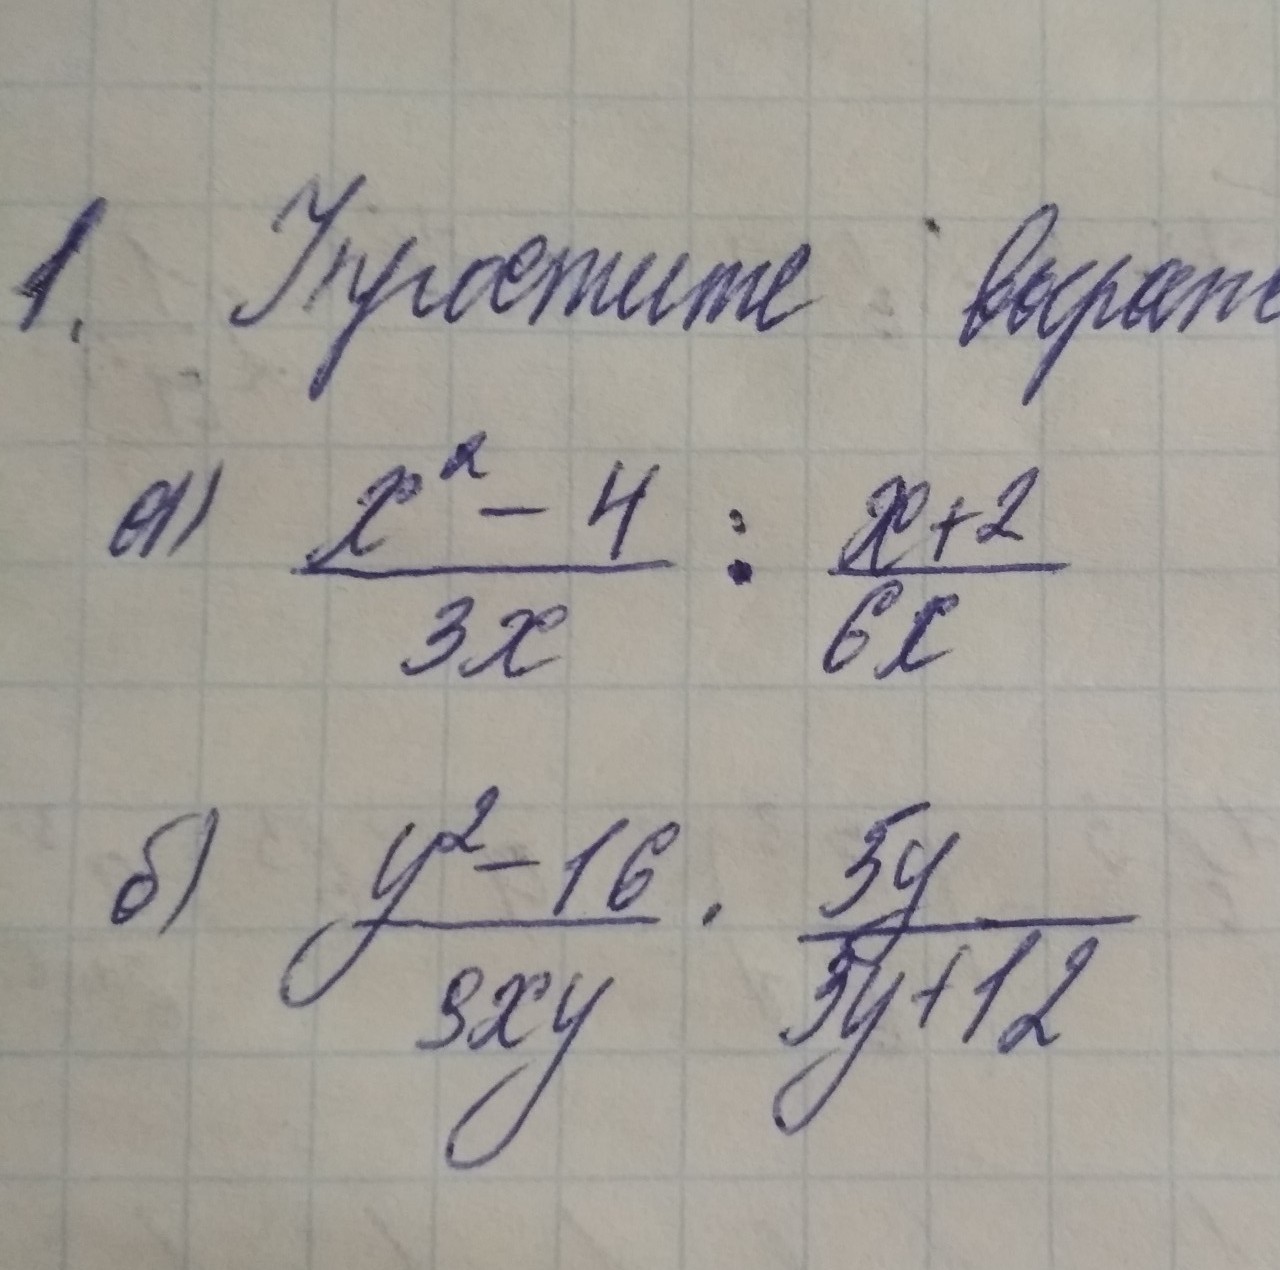 1. Упростите выраже
а) x² - 4 / 3x : x+2 / 6x
б) y² - 16 / 3xy · 5y / 3y+12